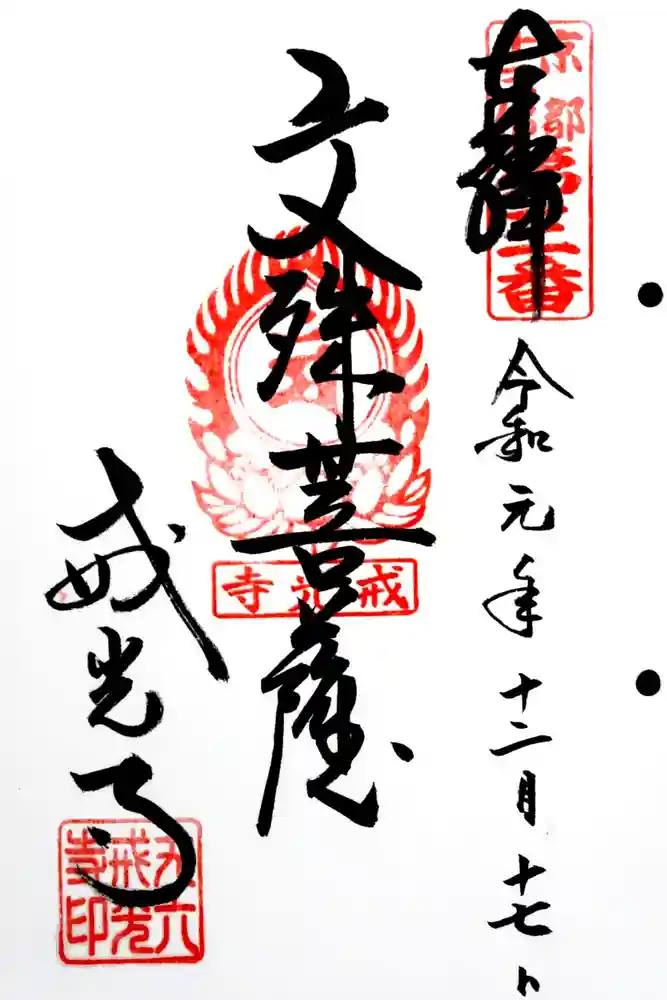 奉拝
京都
第三番
令和元年十二月十七日
文殊菩薩
戒光寺
戒光寺
丈六戒光寺印